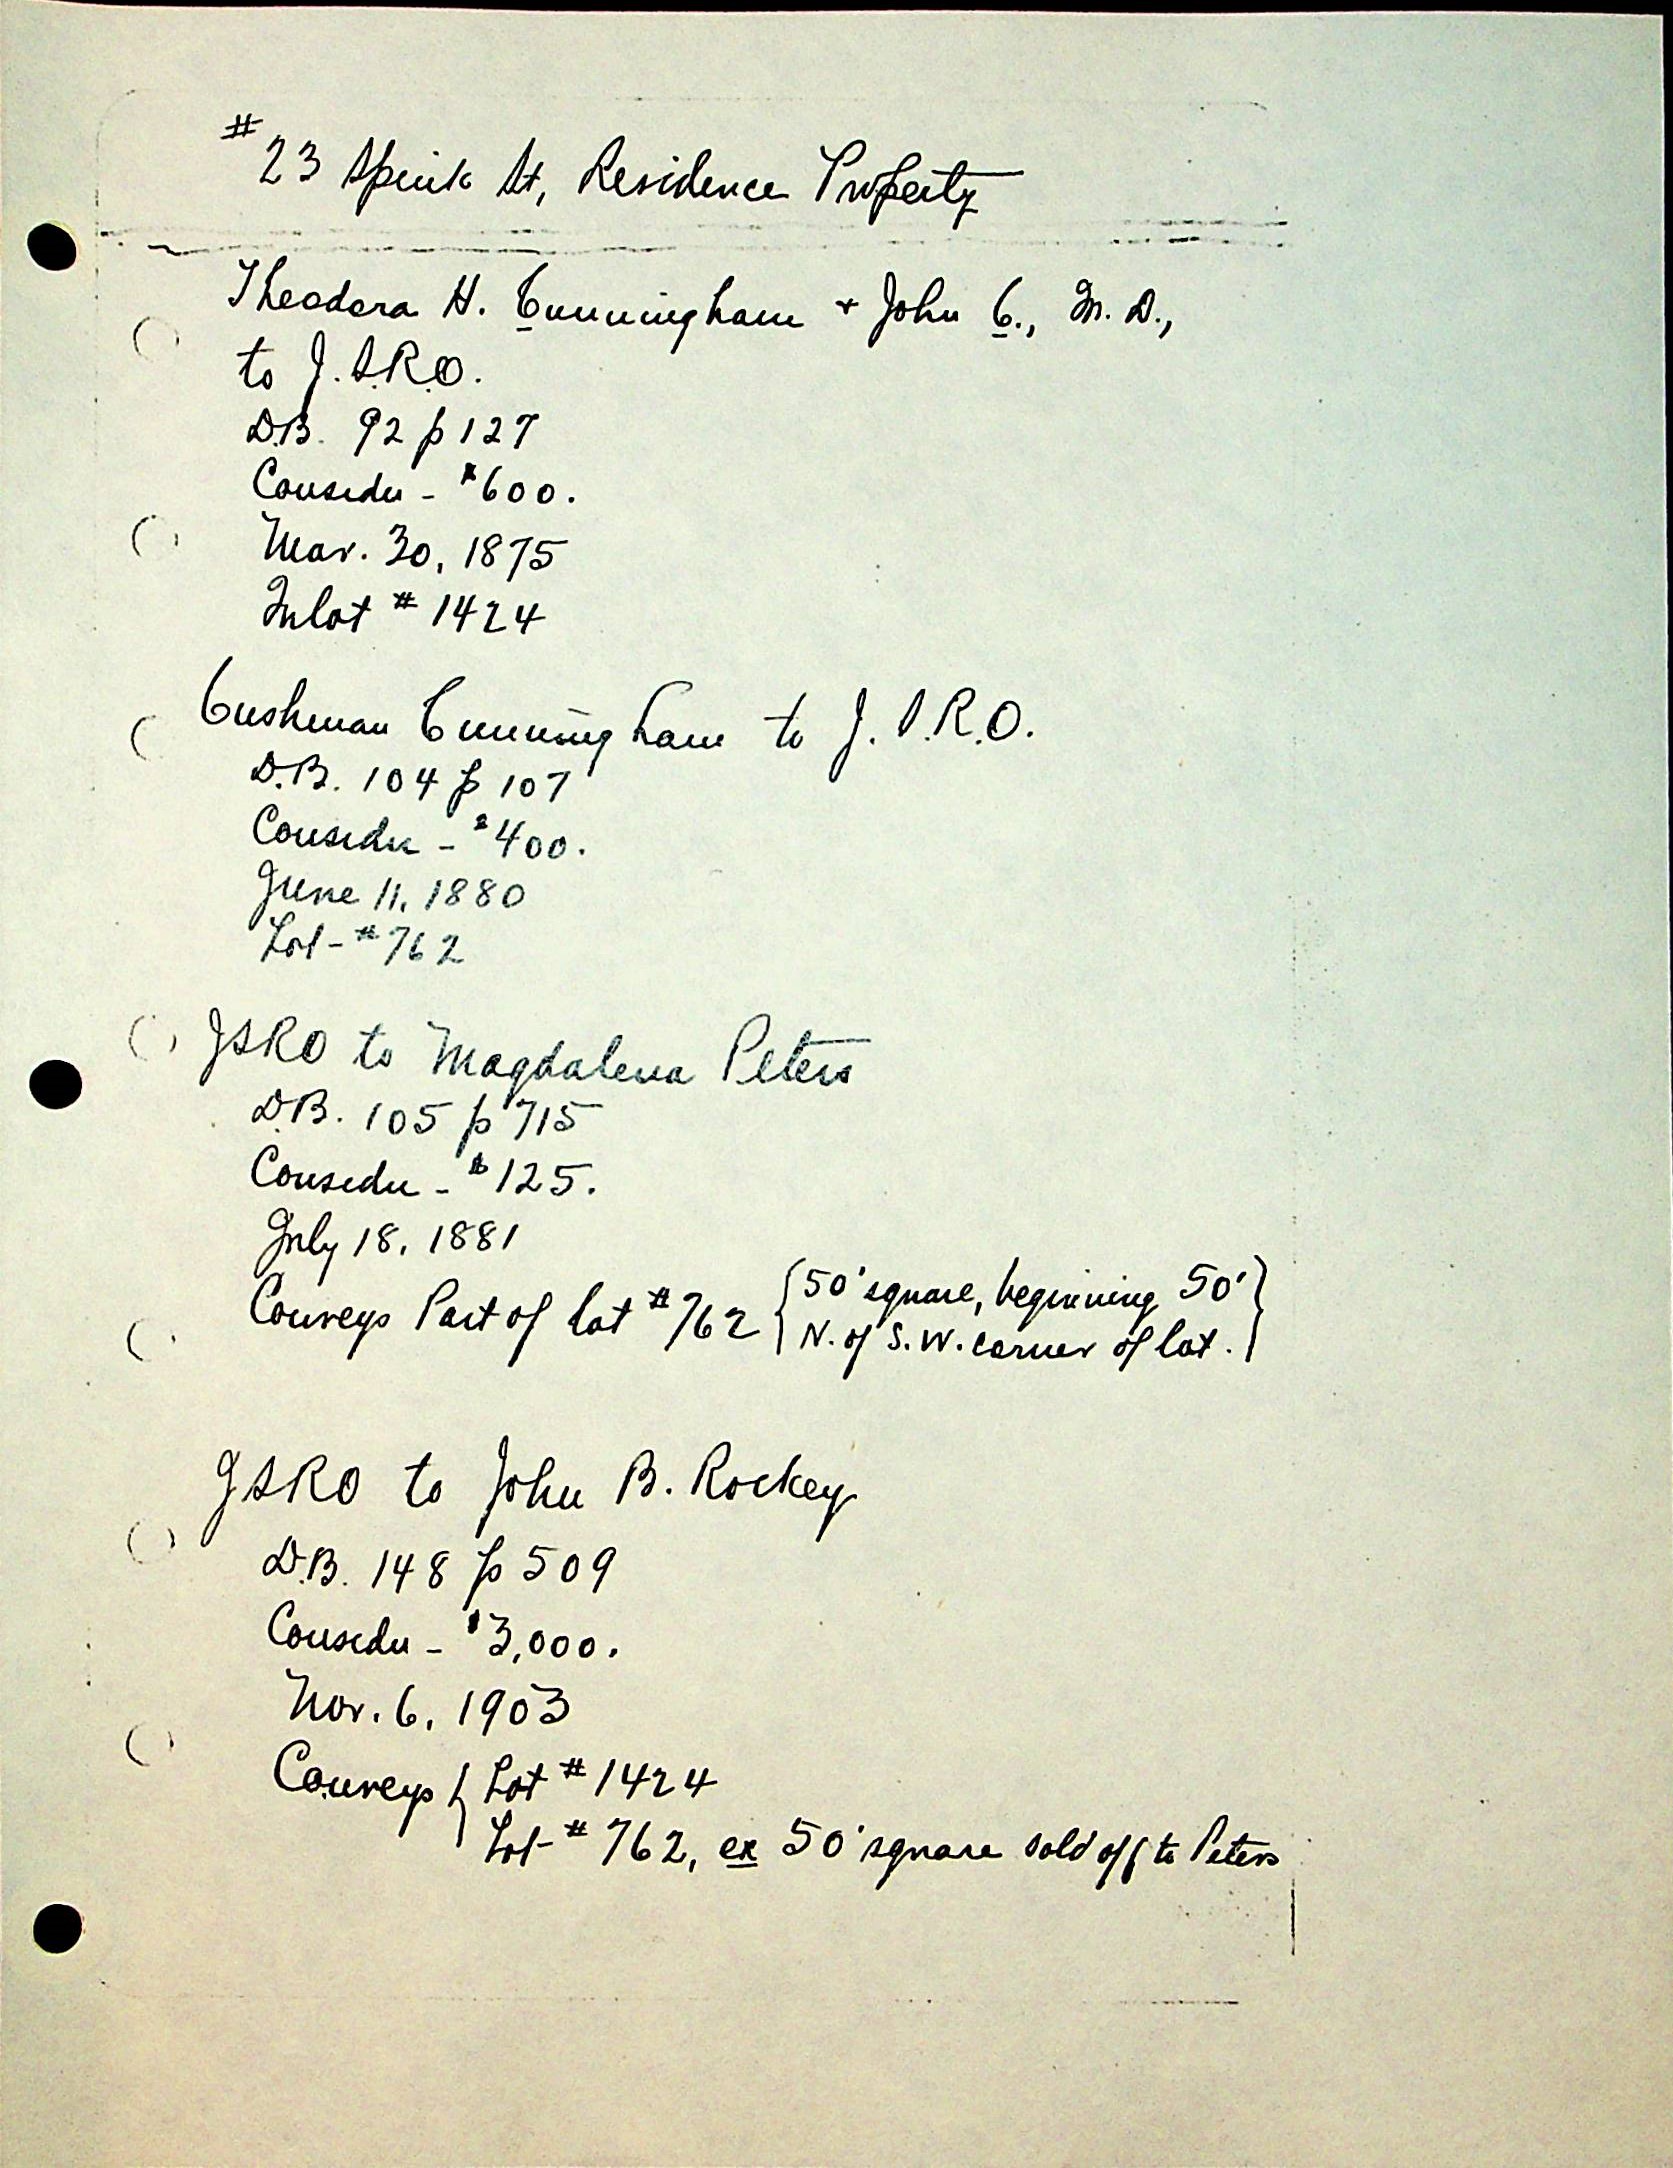 #23 Spink St, Residence Property
Theodora H. Cunningham + John C., M. D.,
to J.S.R.O.
D.B. 92 p 127
Considn - $600.
Mar. 30, 1875
Inlot # 1424
Cushman Cunningham to J.S.R.O.
D.B. 104 p 107
Considn - $400.
June 11, 1880
Lot - #762
JSRO to Magdalena Peters
D.B. 105 p 715
Considn - $125.
July 18, 1881
Conveys Part of Lot #762 {50' square, beginning 50'}
{N. of S.W. corner of lot.}
JSRO to John B. Rockey
D.B. 148 p 509
Considn - $3,000.
Nov. 6, 1903
Conveys { Lot #1424
Lot - # 762, ex 50' square sold off to Peters